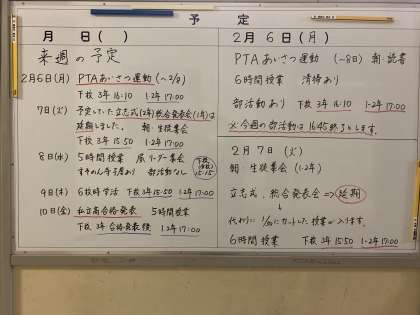 予定
月 日( )
来週の予定
2月6日(月) PTAあいさつ運動(~7/8)
下校 3年 16:10 1・2年 17:00
7日(火) 予定していた立志式(2年)総合発表会(1年)は
延期しました。 朝・生徒集会
下校 3年 15:50 1・2年 17:00
8日(水) 5時間授業 リーダー集会
部活動なし
下校 15:15
9日(木) 6校時学活 下校 3年 15:50 1・2年 17:00
10日(金) 私立高合格発表 5時間授業
下校 3年 合格発表後 1・2年 17:00
2月6日(月)
PTAあいさつ運動 (~8日) 朝・読書
6時間授業 清掃あり
部活動あり 下校 3年 16:10 1・2年 17:00
※今週の部活動は16:45終了とします。
2月7日(火)
朝・生徒集会(1・2年)
立志式、総合発表会⇒延期
↓
代わりに にカットした授業が入ります。
6時間授業 下校 3年 15:50 1・2年 17:00